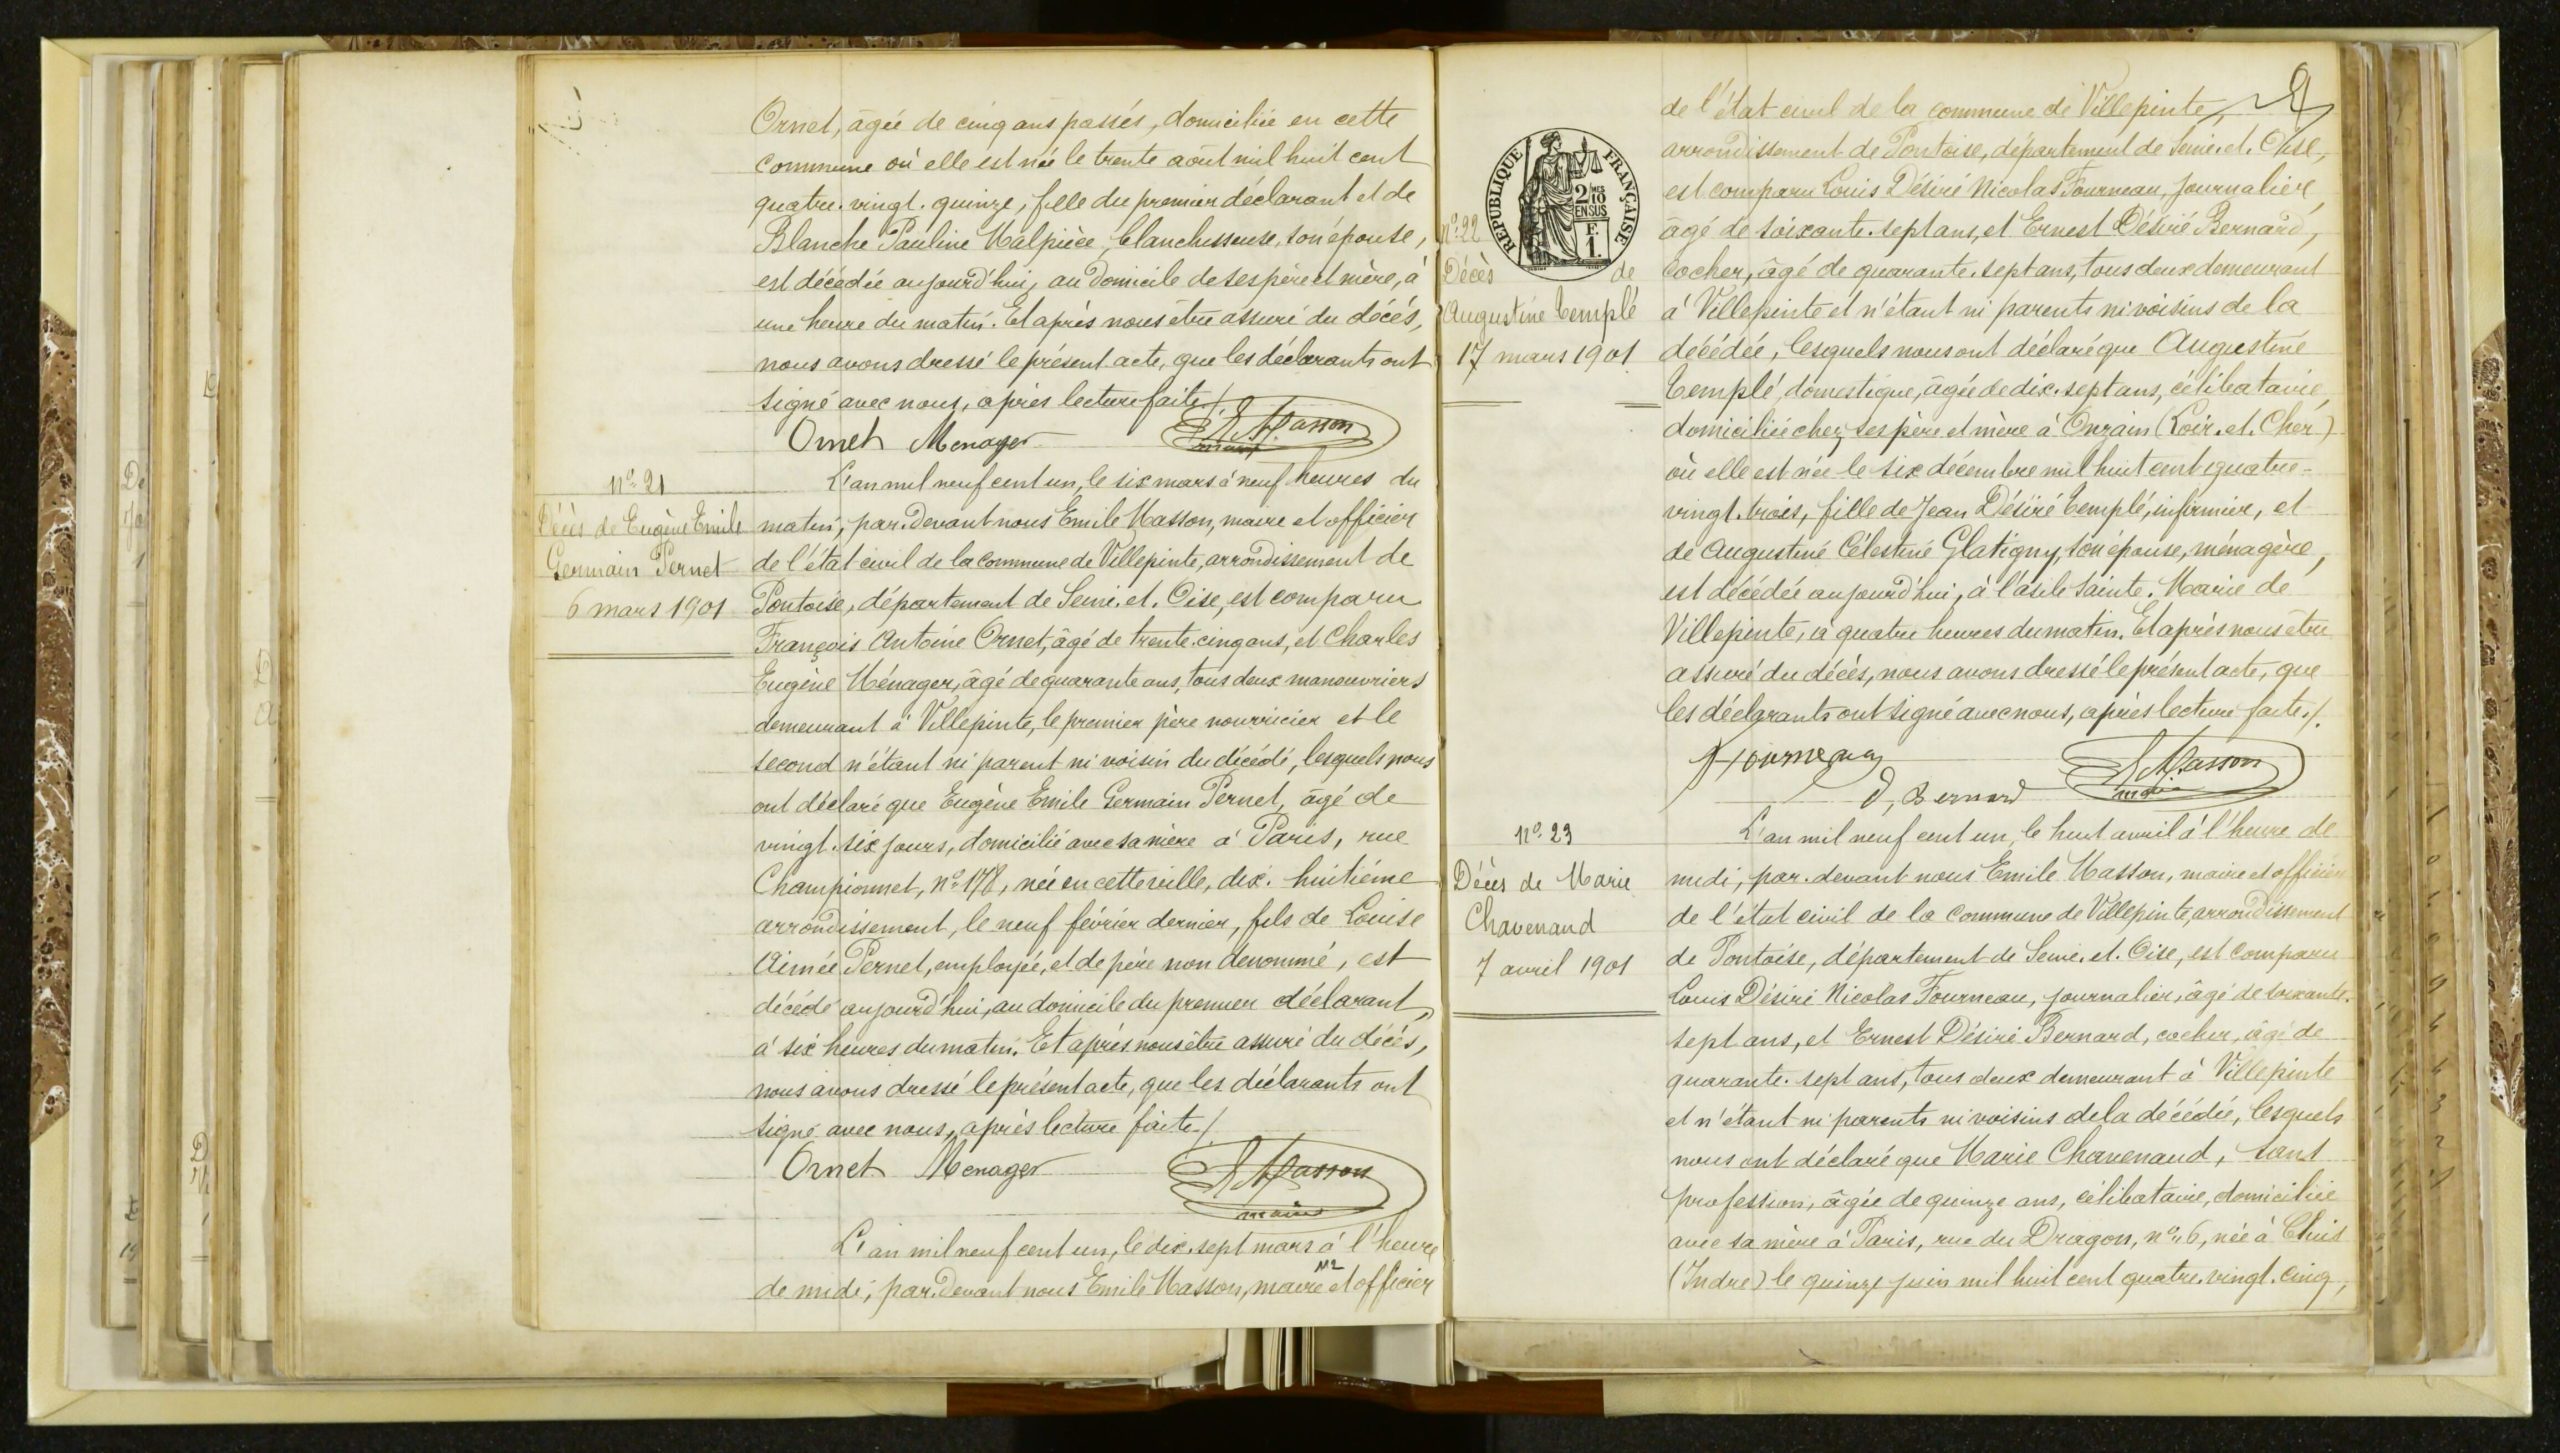 Ornet, âgée de cinq ans passés, domiciliée en cette
commune où elle est née le trente août mil huit cent
quatre-vingt-quinze, fille du premier déclarant et de
Blanche Pauline Malpièce, blanchisseuse, son épouse,
est décédée aujourd'hui, au domicile de ses père et mère, à
une heure du matin. Et après nous être assuré du décès,
nous avons dressé le présent acte, que les déclarants ont
signé avec nous, après lecture faite./.
Ornet Menager E. Masson
maire
N° 21
Décès de Eugène Emile
Germain Pernet
6 mars 1901
L'an mil neuf cent un, le six mars à neuf heures du
matin, par-devant nous Emile Masson, maire et officier
de l'état civil de la commune de Villepinte, arrondissement de
Pontoise, département de Seine-et-Oise, est comparu
François Antoine Ornet, âgé de trente-cinq ans, et Charles
Eugène Ménager, âgé de quarante ans, tous deux manouvriers
demeurant à Villepinte, le premier père nourricier et le
second n'étant ni parent ni voisin du décédé, lesquels nous
ont déclaré que Eugène Emile Germain Pernet, âgé de
vingt-six jours, domicilié avec sa mère à Paris, rue
Championnet, n° 178, née en cette ville, dix-huitième
arrondissement, le neuf février dernier, fils de Louise
Aimée Pernet, employée, et de père non dénommé, est
décédé aujourd'hui, au domicile du premier déclarant,
à six heures du matin. Et après nous être assuré du décès,
nous avons dressé le présent acte, que les déclarants ont
signé avec nous, après lecture faite./.
Ornet Menager E. Masson
maire
L'an mil neuf cent un, le dix-sept mars à l'heure
de midi, par-devant nous Emile Masson, maire et officier
N° 22
Décès de
Augustine Templé
17 mars 1901
RÉPUBLIQUE FRANÇAISE
2/10 EN SUS
F. 1.
9
de l'état civil de la commune de Villepinte,
arrondissement de Pontoise, département de Seine-et-Oise,
est comparu Louis Désiré Nicolas Fourneau, journalier,
âgé de soixante-sept ans, et Ernest Désiré Bernard,
cocher, âgé de quarante-sept ans, tous deux demeurant
à Villepinte et n'étant ni parents ni voisins de la
décédée, lesquels nous ont déclaré que Augustine
Templé, domestique, âgée de dix-sept ans, célibataire,
domiciliée chez ses père et mère à Onzain (Loir-et-Cher)
où elle est née le six décembre mil huit cent quatre-
vingt-trois, fille de Jean Désiré Templé, infirmier, et
de Augustine Célestine Glatigny, son épouse, ménagère,
est décédée aujourd'hui, à l'asile Sainte-Marie de
Villepinte, à quatre heures du matin. Et après nous être
assuré du décès, nous avons dressé le présent acte, que
les déclarants ont signé avec nous, après lecture faite./.
Fourneau
D. Bernard E. Masson
maire
N° 23
Décès de Marie
Chavenaud
7 avril 1901
L'an mil neuf cent un, le huit avril à l'heure de
midi, par-devant nous Emile Masson, maire et officier
de l'état civil de la commune de Villepinte, arrondissement
de Pontoise, département de Seine-et-Oise, est comparu
Louis Désiré Nicolas Fourneau, journalier, âgé de soixante-
sept ans, et Ernest Désiré Bernard, cocher, âgé de
quarante-sept ans, tous deux demeurant à Villepinte
et n'étant ni parents ni voisins de la décédée, lesquels
nous ont déclaré que Marie Chavenaud, sans
profession, âgée de quinze ans, célibataire, domiciliée
avec sa mère à Paris, rue du Dragon, n° 6, née à Cluis
(Indre) le quinze juin mil huit cent quatre-vingt-cinq,